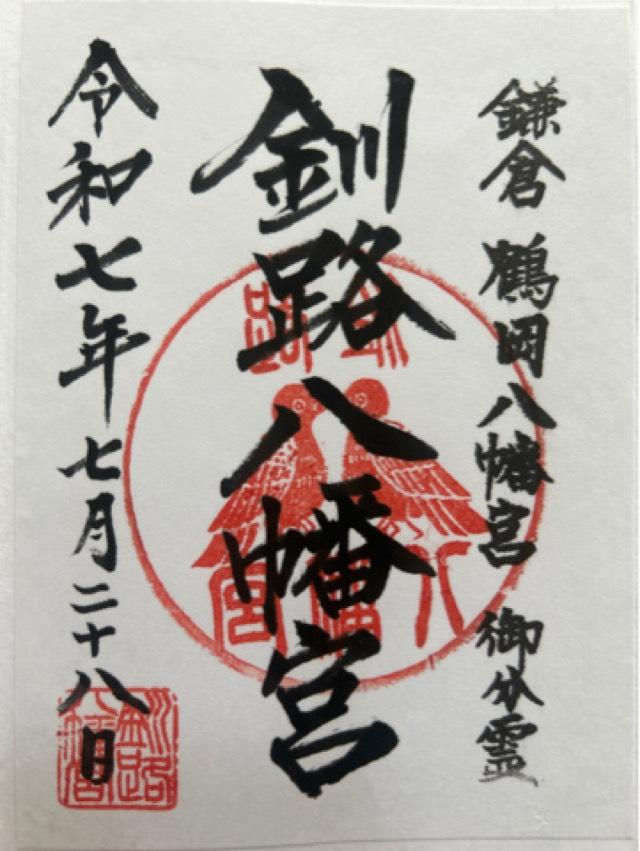 鎌倉 鶴岡八幡宮 御分霊
釧路八幡宮
令和七年七月二十八日
釧路
八幡宮
釧路
八幡宮